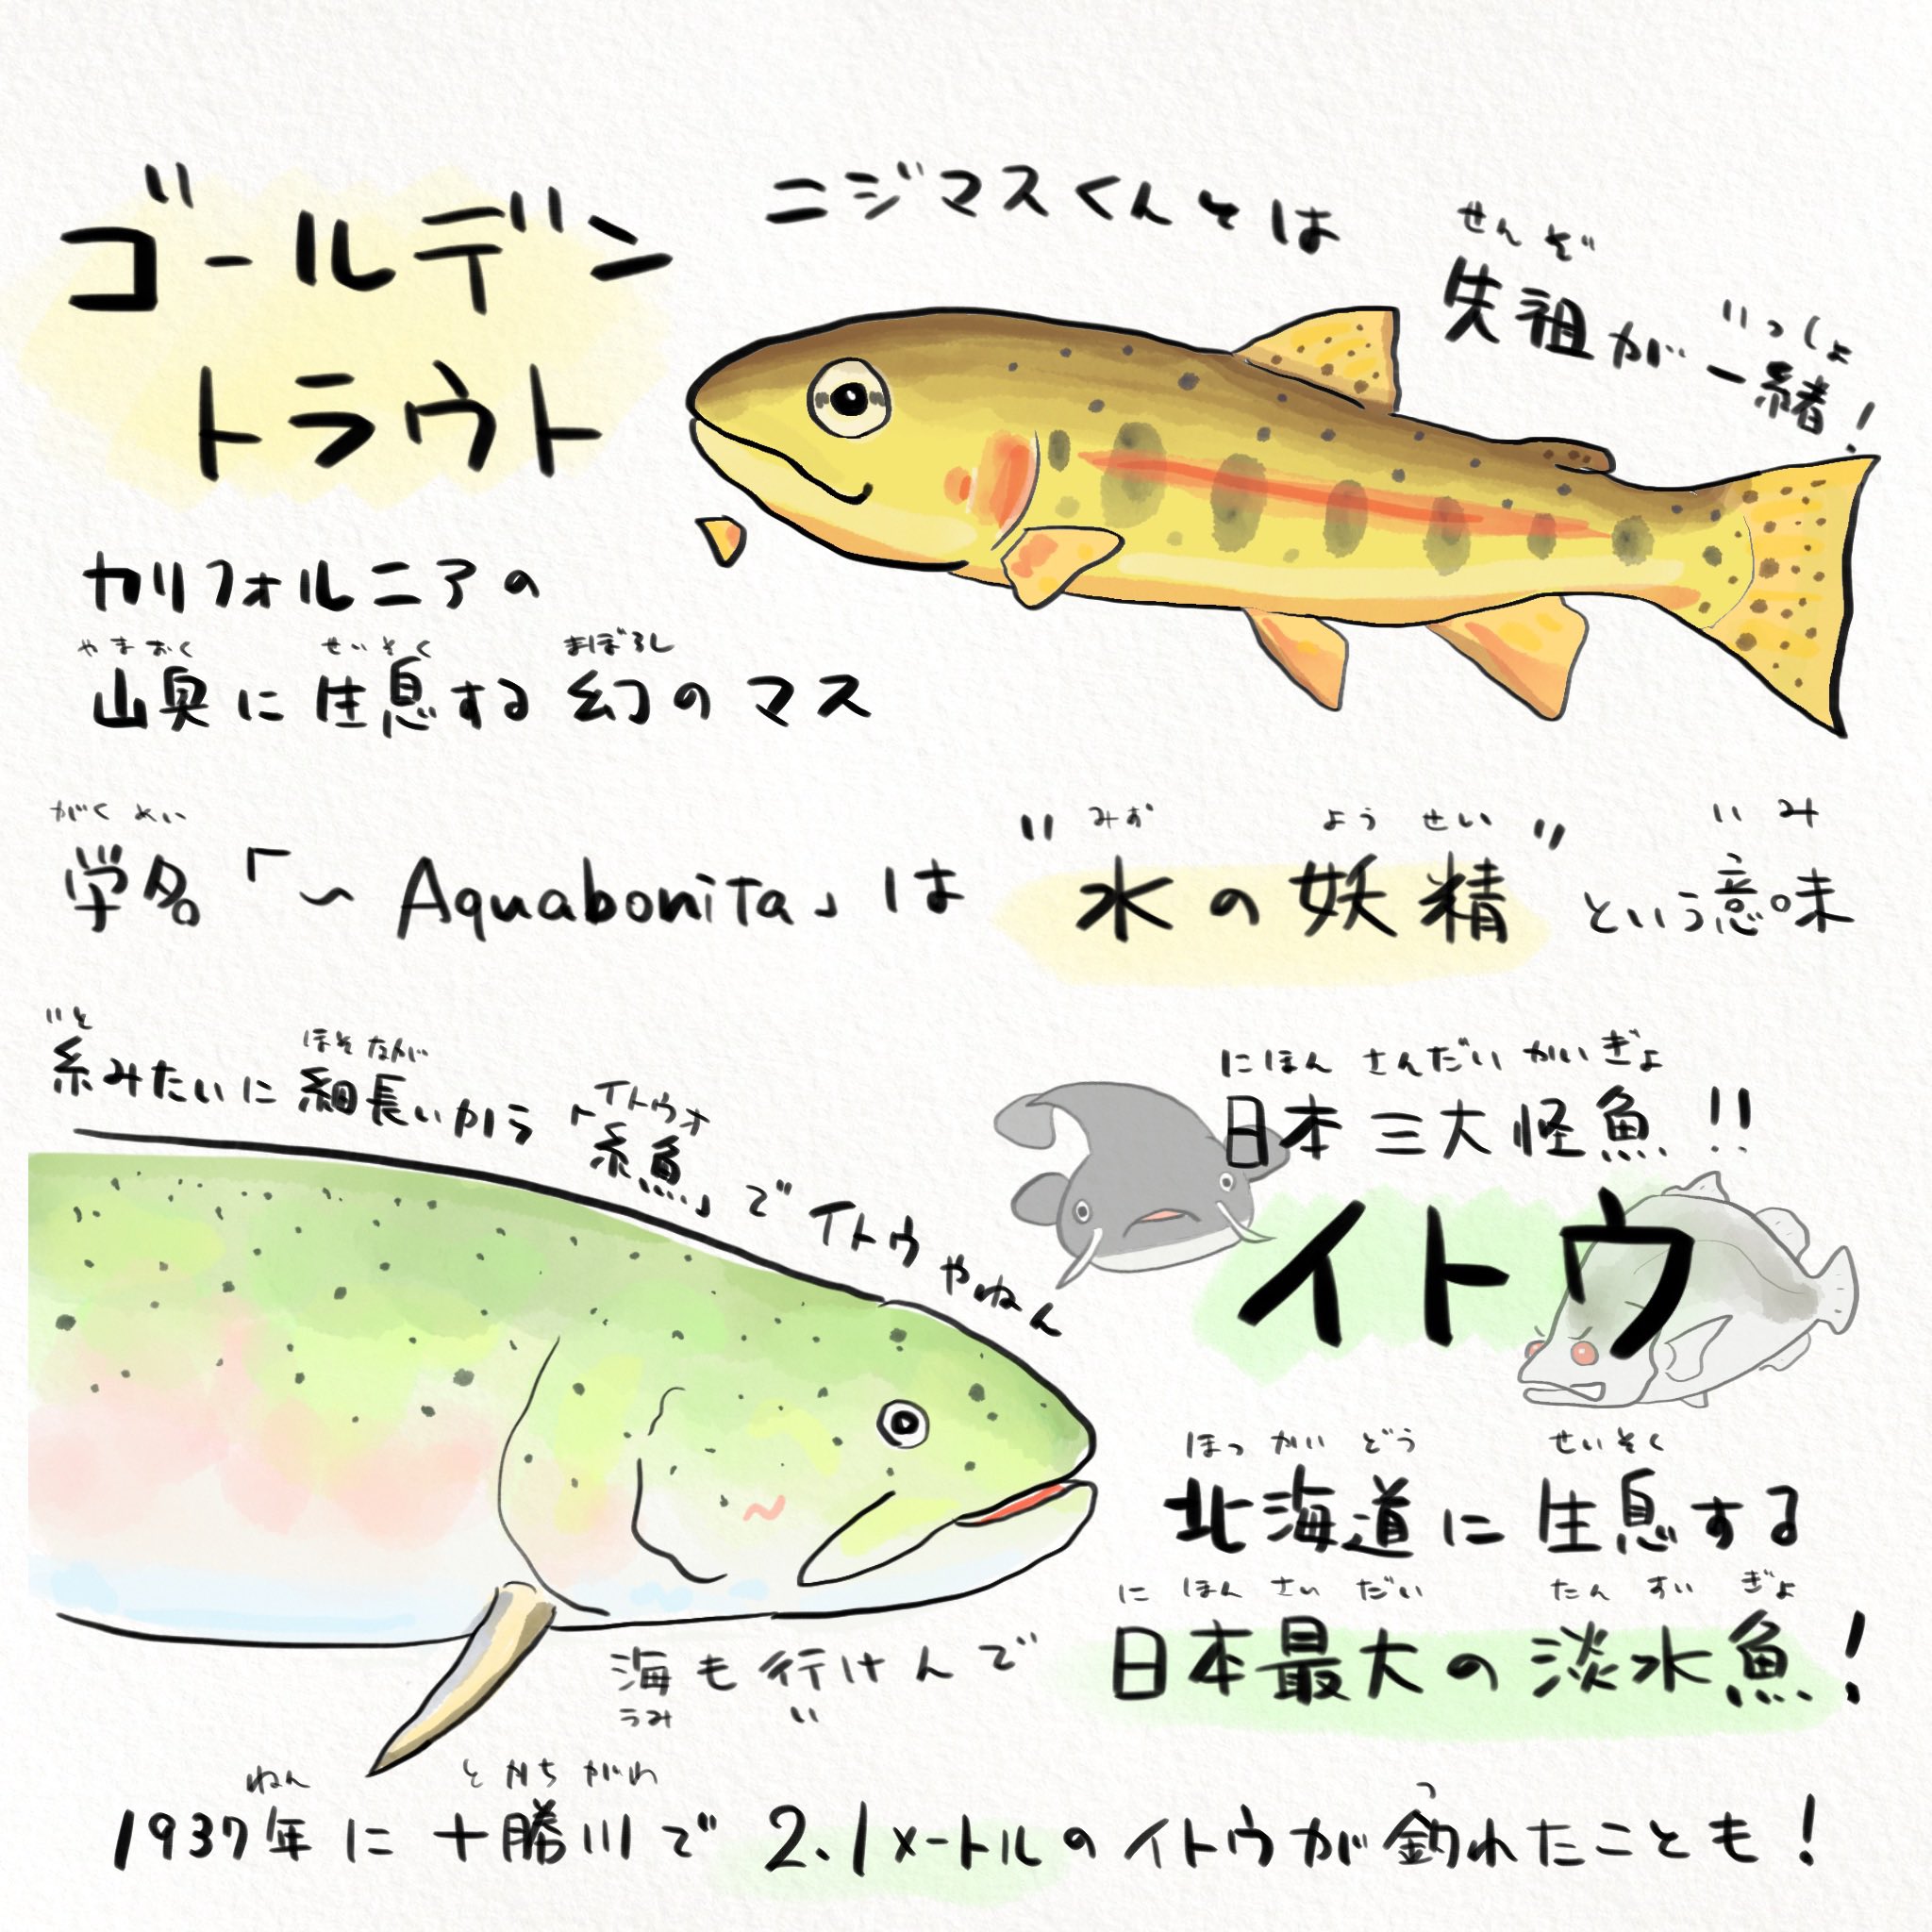 ゴールデン
トラウト
ニジマスくんとは
せんぞ
先祖が
いっしょ
一緒!
カリフォルニアの
やまおく せいそく まぼろし
山奥に生息する幻のマス
がくめい みず ようせい いみ
学名「〜Aquabonita」は"水の妖精"という意味
いと ほそなが イトウオ
糸みたいに細長いから「糸魚」でイトウやねん
にほん さんだい かいぎょ
日本三大怪魚!!
イトウ
ほっかいどう せいそく
北海道に生息する
にほんさいだい たんすいぎょ
日本最大の淡水魚!
海も行けんで
うみ い
ねん とかちがわ つ
1937年に十勝川で2.1メートルのイトウが釣れたことも!